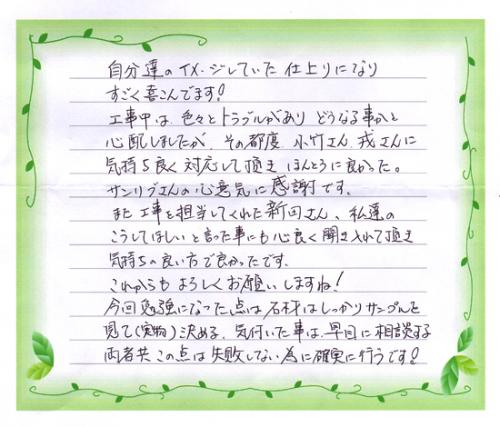 自分達のイメージしていた仕上りになり
すごく喜こんでます!
工事中は、色々とトラブルがあり どうなる事かと
心配しましたが、その都度、小竹さん、戎さんに
気持ち良く対応して頂き ほんとうに良かった。
サンリブさんの心意気に感謝です。
また工事を担当してくれた新田さん、私達の
こうしてほしいと言った事にも心良く聞き入れて頂き
気持ちの良い方で良かったです。
これからも よろしくお願いしますね!
今回勉強になった点は石材はしっかりサンプルを
見て(実物)決める、気付いた事は、早目に相談する
両者共この点は失敗しない為に確実に行うです!